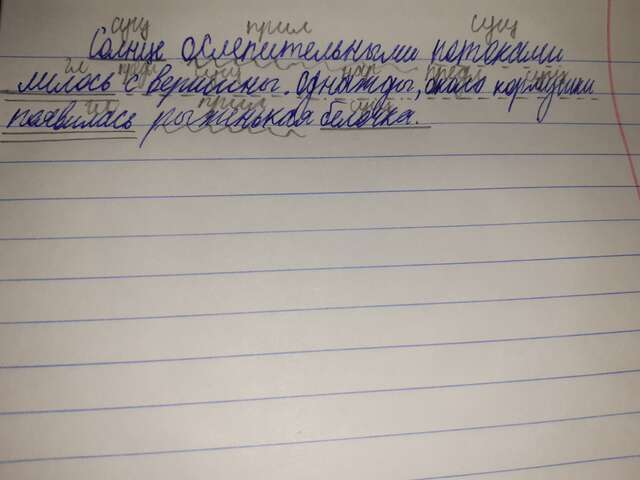 сущ прил сущ
Солнце ослепительными потоками
гл пред сущ нар пред сущ
лилось с вершины. однажды, около кормушки
гл прил сущ
появилась рыженькая белочка.